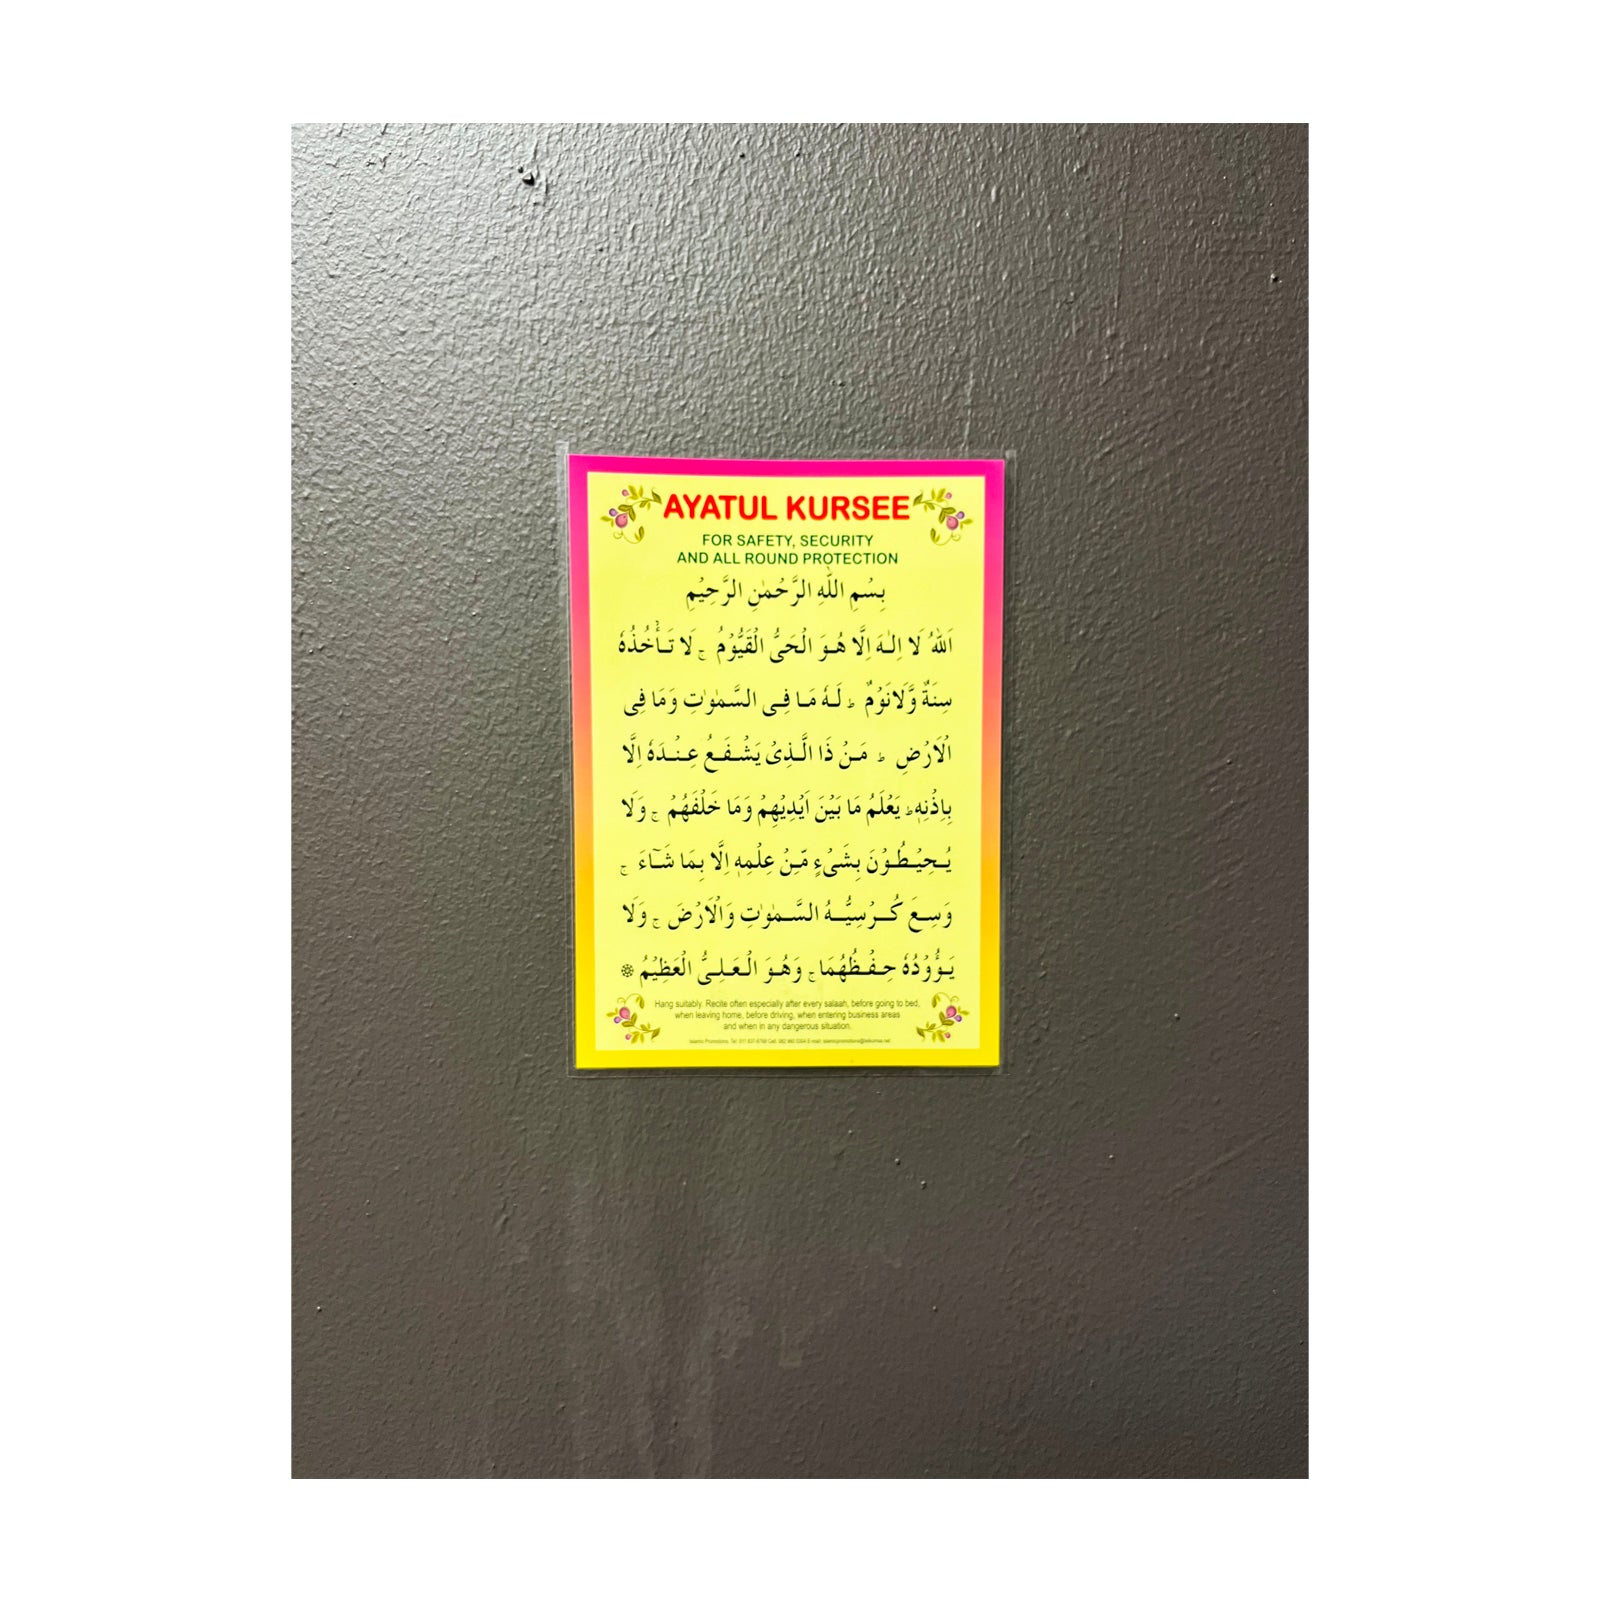 AYATUL KURSEE
FOR SAFETY, SECURITY
AND ALL ROUND PROTECTION
بِسْمِ اللّٰهِ الرَّحْمٰنِ الرَّحِيْمِ
اَللّٰهُ لَا اِلٰهَ اِلَّا هُوَ الْحَىُّ الْقَيُّوْمُ ۚ لَا تَأْخُذُهٗ
سِنَةٌ وَّلَانَوْمٌ ؕ لَهٗ مَا فِى السَّمٰوٰتِ وَمَا فِى
الْاَرْضِ ؕ مَنْ ذَا الَّذِىْ يَشْفَعُ عِنْدَهٗ اِلَّا
بِاِذْنِهٖ ؕ يَعْلَمُ مَا بَيْنَ اَيْدِيْهِمْ وَمَا خَلْفَهُمْ ۚ وَلَا
يُحِيْطُوْنَ بِشَىْءٍ مِّنْ عِلْمِهٖ اِلَّا بِمَا شَآءَ ۚ
وَسِعَ كُرْسِيُّهُ السَّمٰوٰتِ وَالْاَرْضَ ۚ وَلَا
يَؤُوْدُهٗ حِفْظُهُمَا ۚ وَهُوَ الْعَلِىُّ الْعَظِيْمُ
Hang suitably. Recite often especially after every salaah, before going to bed,
when leaving home, before driving, when entering business areas
and when in any dangerous situation.
Islamic Promotions, Tel: